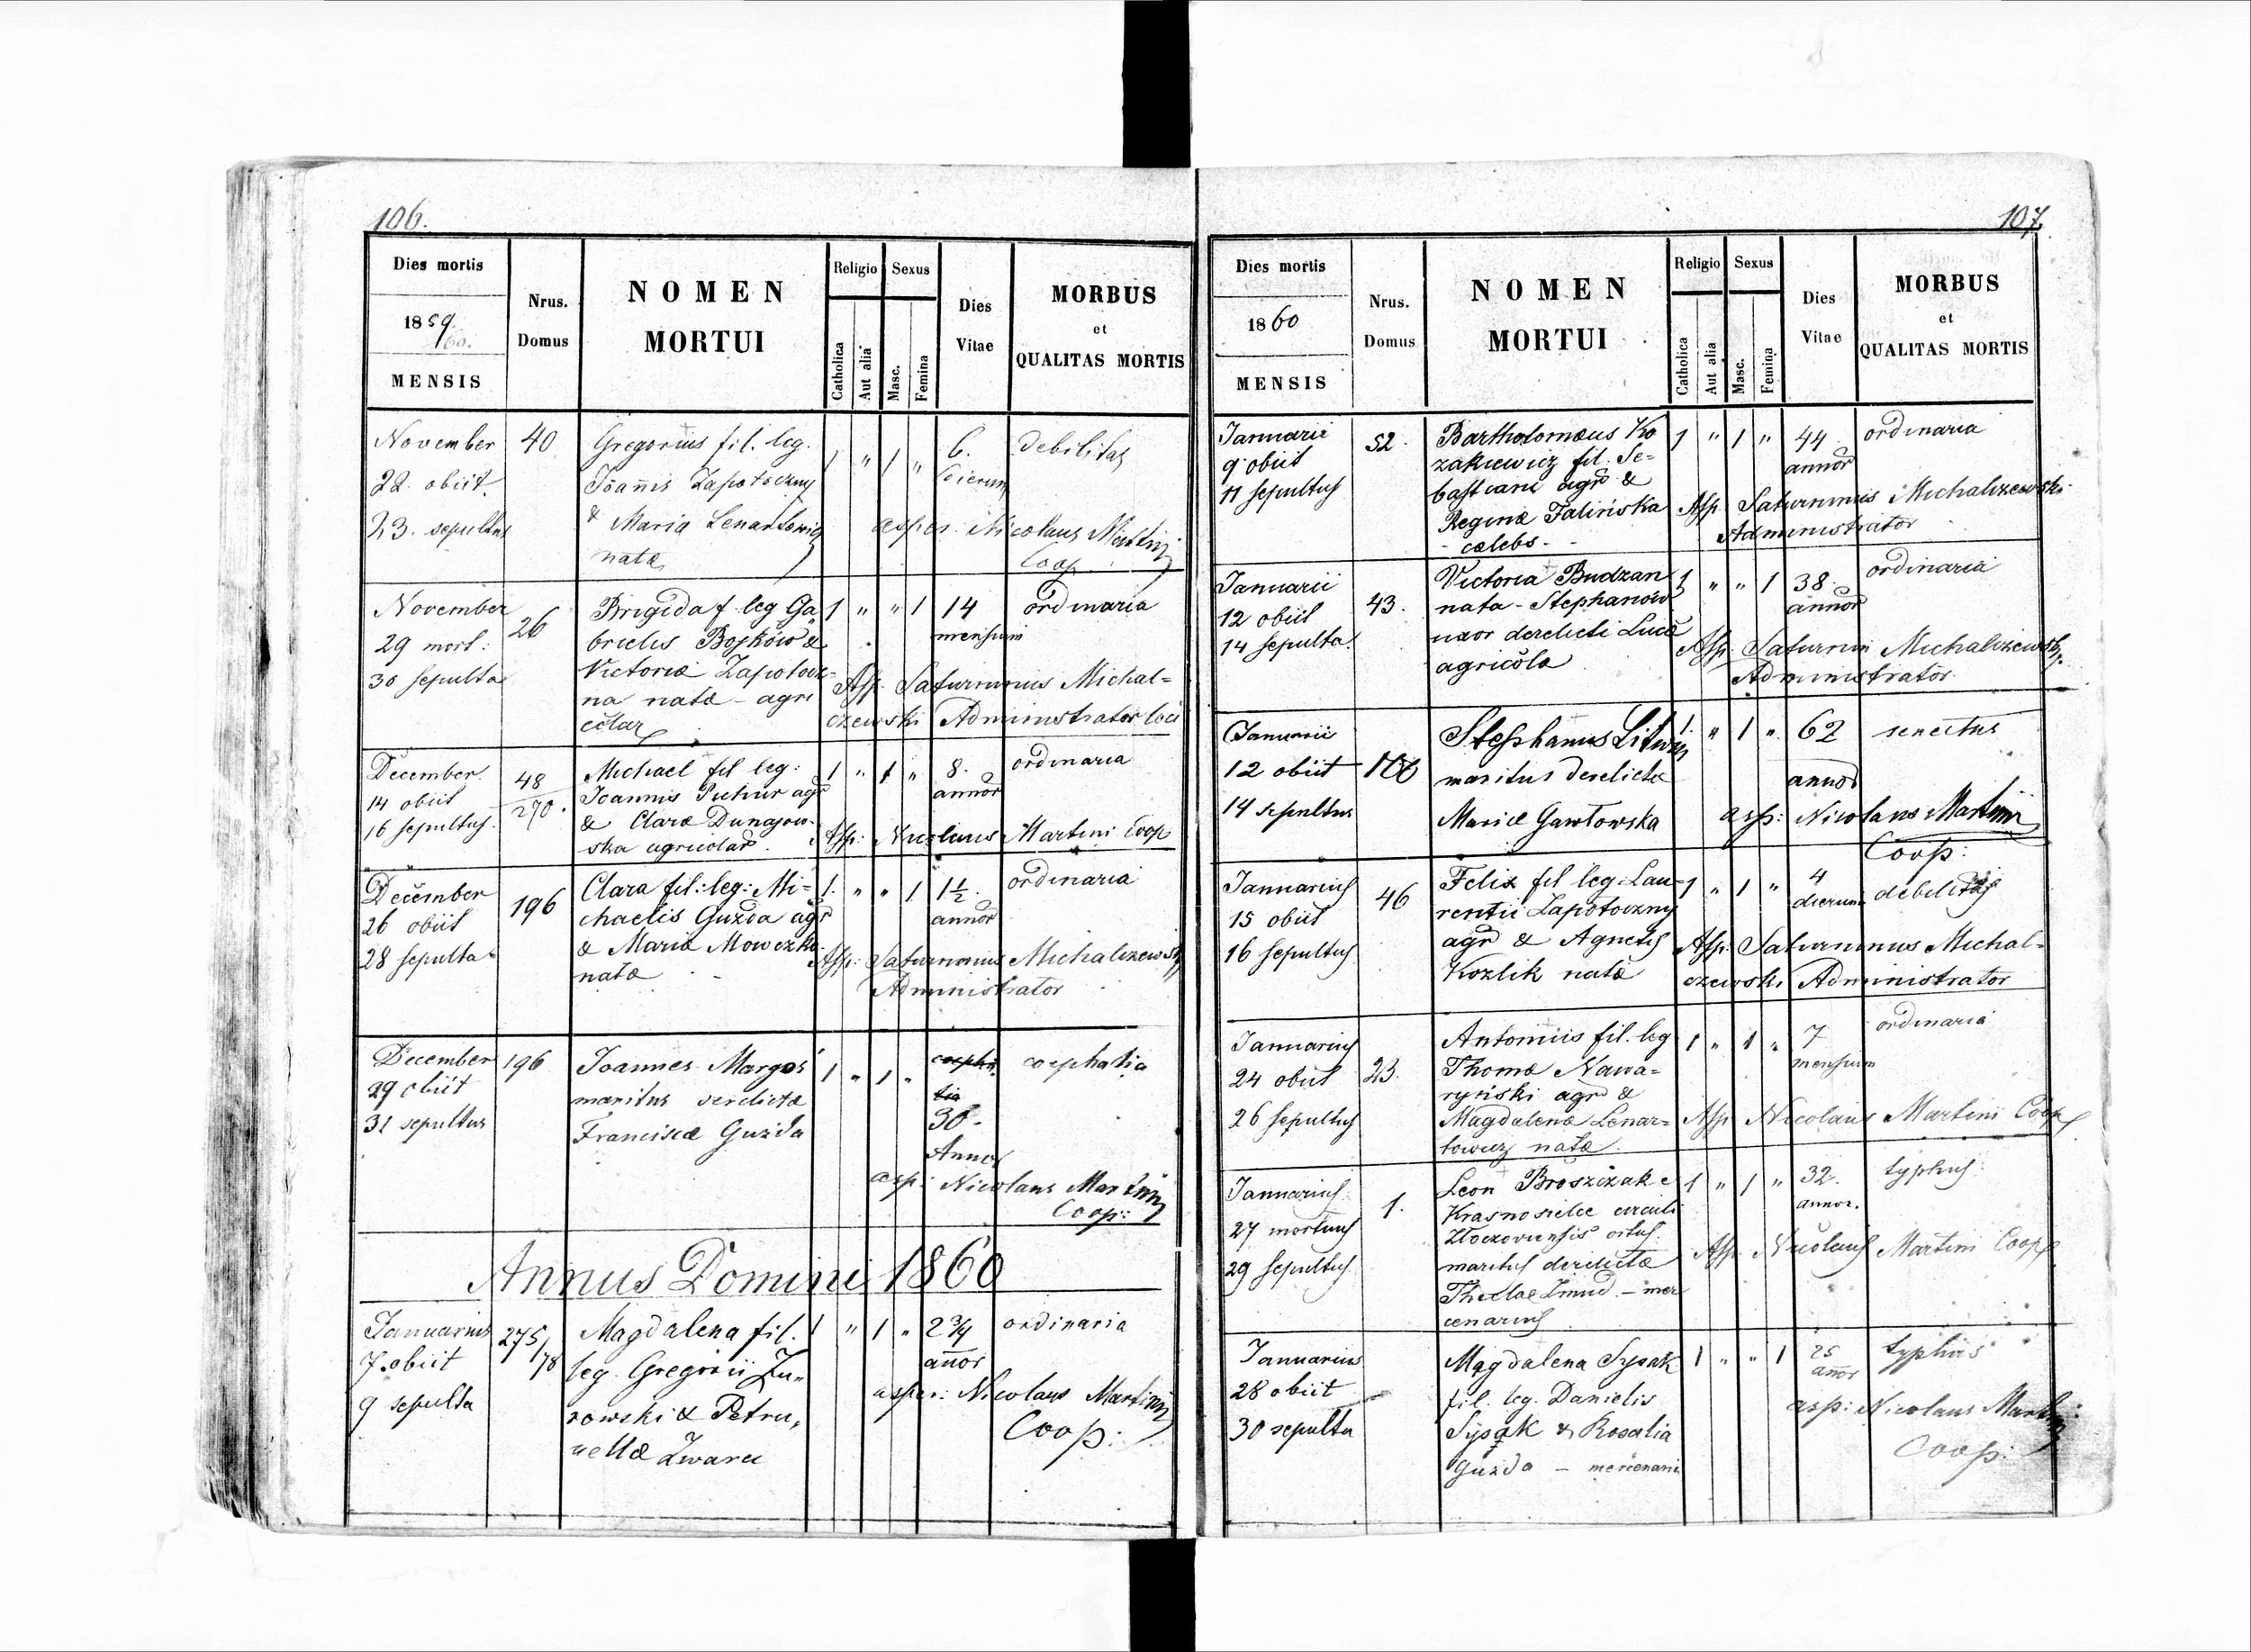 106.
Dies mortis
1859
/60.
MENSIS
Nrus.
Domus
NOMEN
MORTUI
Religio
Catholica
Aut alia
Sexus
Masc.
Femina
Dies
Vitae
MORBUS
et
QUALITAS MORTIS
November 40 Gregorius fil. leg. 1 " 1 " 6. debilitas
22. obiit. Ioannis Zapotoczny dierum
23. sepultus & Maria Lenartowicz asper. Nicolaus Martini
natæ Coop
November 26 Brigida f. leg Ga 1 " " 1 14 ordinaria
29 mort: brielis Bojków & mensium
30 sepulta Victoriæ Zapotocz-
na natæ - agri Asp. Saturninus Michal-
colar czewski Administrator loci
December 48 Michael fil leg: 1 " 1 " 8. ordinaria
14 obiit 270. Joannis Puhur agr annor
16 sepultus. & Clara Dunajow-
ska agricolar. Asp: Nicolaus Martini Coop
December 196 Clara fil: leg: Mi= 1. " " 1 1½. ordinaria
26 obiit chaelis Guzda agr annor
28 sepulta & Maria Mowczko Asp: Saturninus Michalczewski
natæ Administrator
December 196 Joannes Margoś 1 " 1 " cephalia
29 obiit maritus derelictæ 30-
31 sepultus Franciscæ Guzda Annor
asp: Nicolaus Martini
Coop:
Annus Domini 1860
Januarius 275/78 Magdalena fil. 1 " 1 " 2¾ ordinaria
7. obiit leg Gregorii Zu„ annor
9 sepulta rowski & Petru„ asper: Nicolaus Martini
nellæ Zwaru Coop:
107
Dies mortis
1860
MENSIS
Nrus.
Domus
NOMEN
MORTUI
Religio
Catholica
Aut alia
Sexus
Masc.
Femina
Dies
Vitae
MORBUS
et
QUALITAS MORTIS
Januarii 52. Bartholomæus Ko 1 " 1 " 44 ordinaria
9 obiit zakiewicz fil. Se= annor
11 sepultus bastiani agr &
Reginæ Falińska Asp. Saturninus Michalczewski
- cælebs. - Administrator
Januarii 43. Victoria Budzan 1 " " 1 38. ordinaria
12 obiit nata - Stephanów annor
14 sepulta. uxor derelicti Lucæ Asp. Saturnin Michalczewski
agricolæ Administrator
Januarii Stephanus Litwin 1. " 1 " 62 senectus
12 obiit 100 maritus derelictæ annor
14 sepultus Mariæ Gawłowska asp: Nicolaus Martini
Coop:
Januarius 46 Felix fil leg: Lau- 1 " 1 " 4 debilitas
15 obiit rentii Zapotoczny dierum
16 sepultus agr & Agnetis Asp: Saturninus Michal-
Kozlik natæ czewski Administrator
Januarius 23. Antonius fil. leg 1 " 1 " 7 ordinaria
24 obiit Thomæ Nawa= mensium
26 sepultus ryński agr &
Magdalena Lenar= Asp Nicolaus Martini Coop
towicz natæ.
Januarius 1. Leon Broszizak e 1 " 1 " 32. typhus
27 mortuus Krasnosielce circuli annor.
29 sepultus Złoczoviensis ortus.
maritus derelictæ Asp. Nicolaus Martini Coop
Theclae Zmud. - mer
cenarius
Januarius Magdalena Sysak 1 " " 1 25 typhus
28 obiit - fil. leg. Danielis annor
30 sepulta Sysak & Rosalia asp: Nicolaus Martini
Guzda - mercenarii Coop: